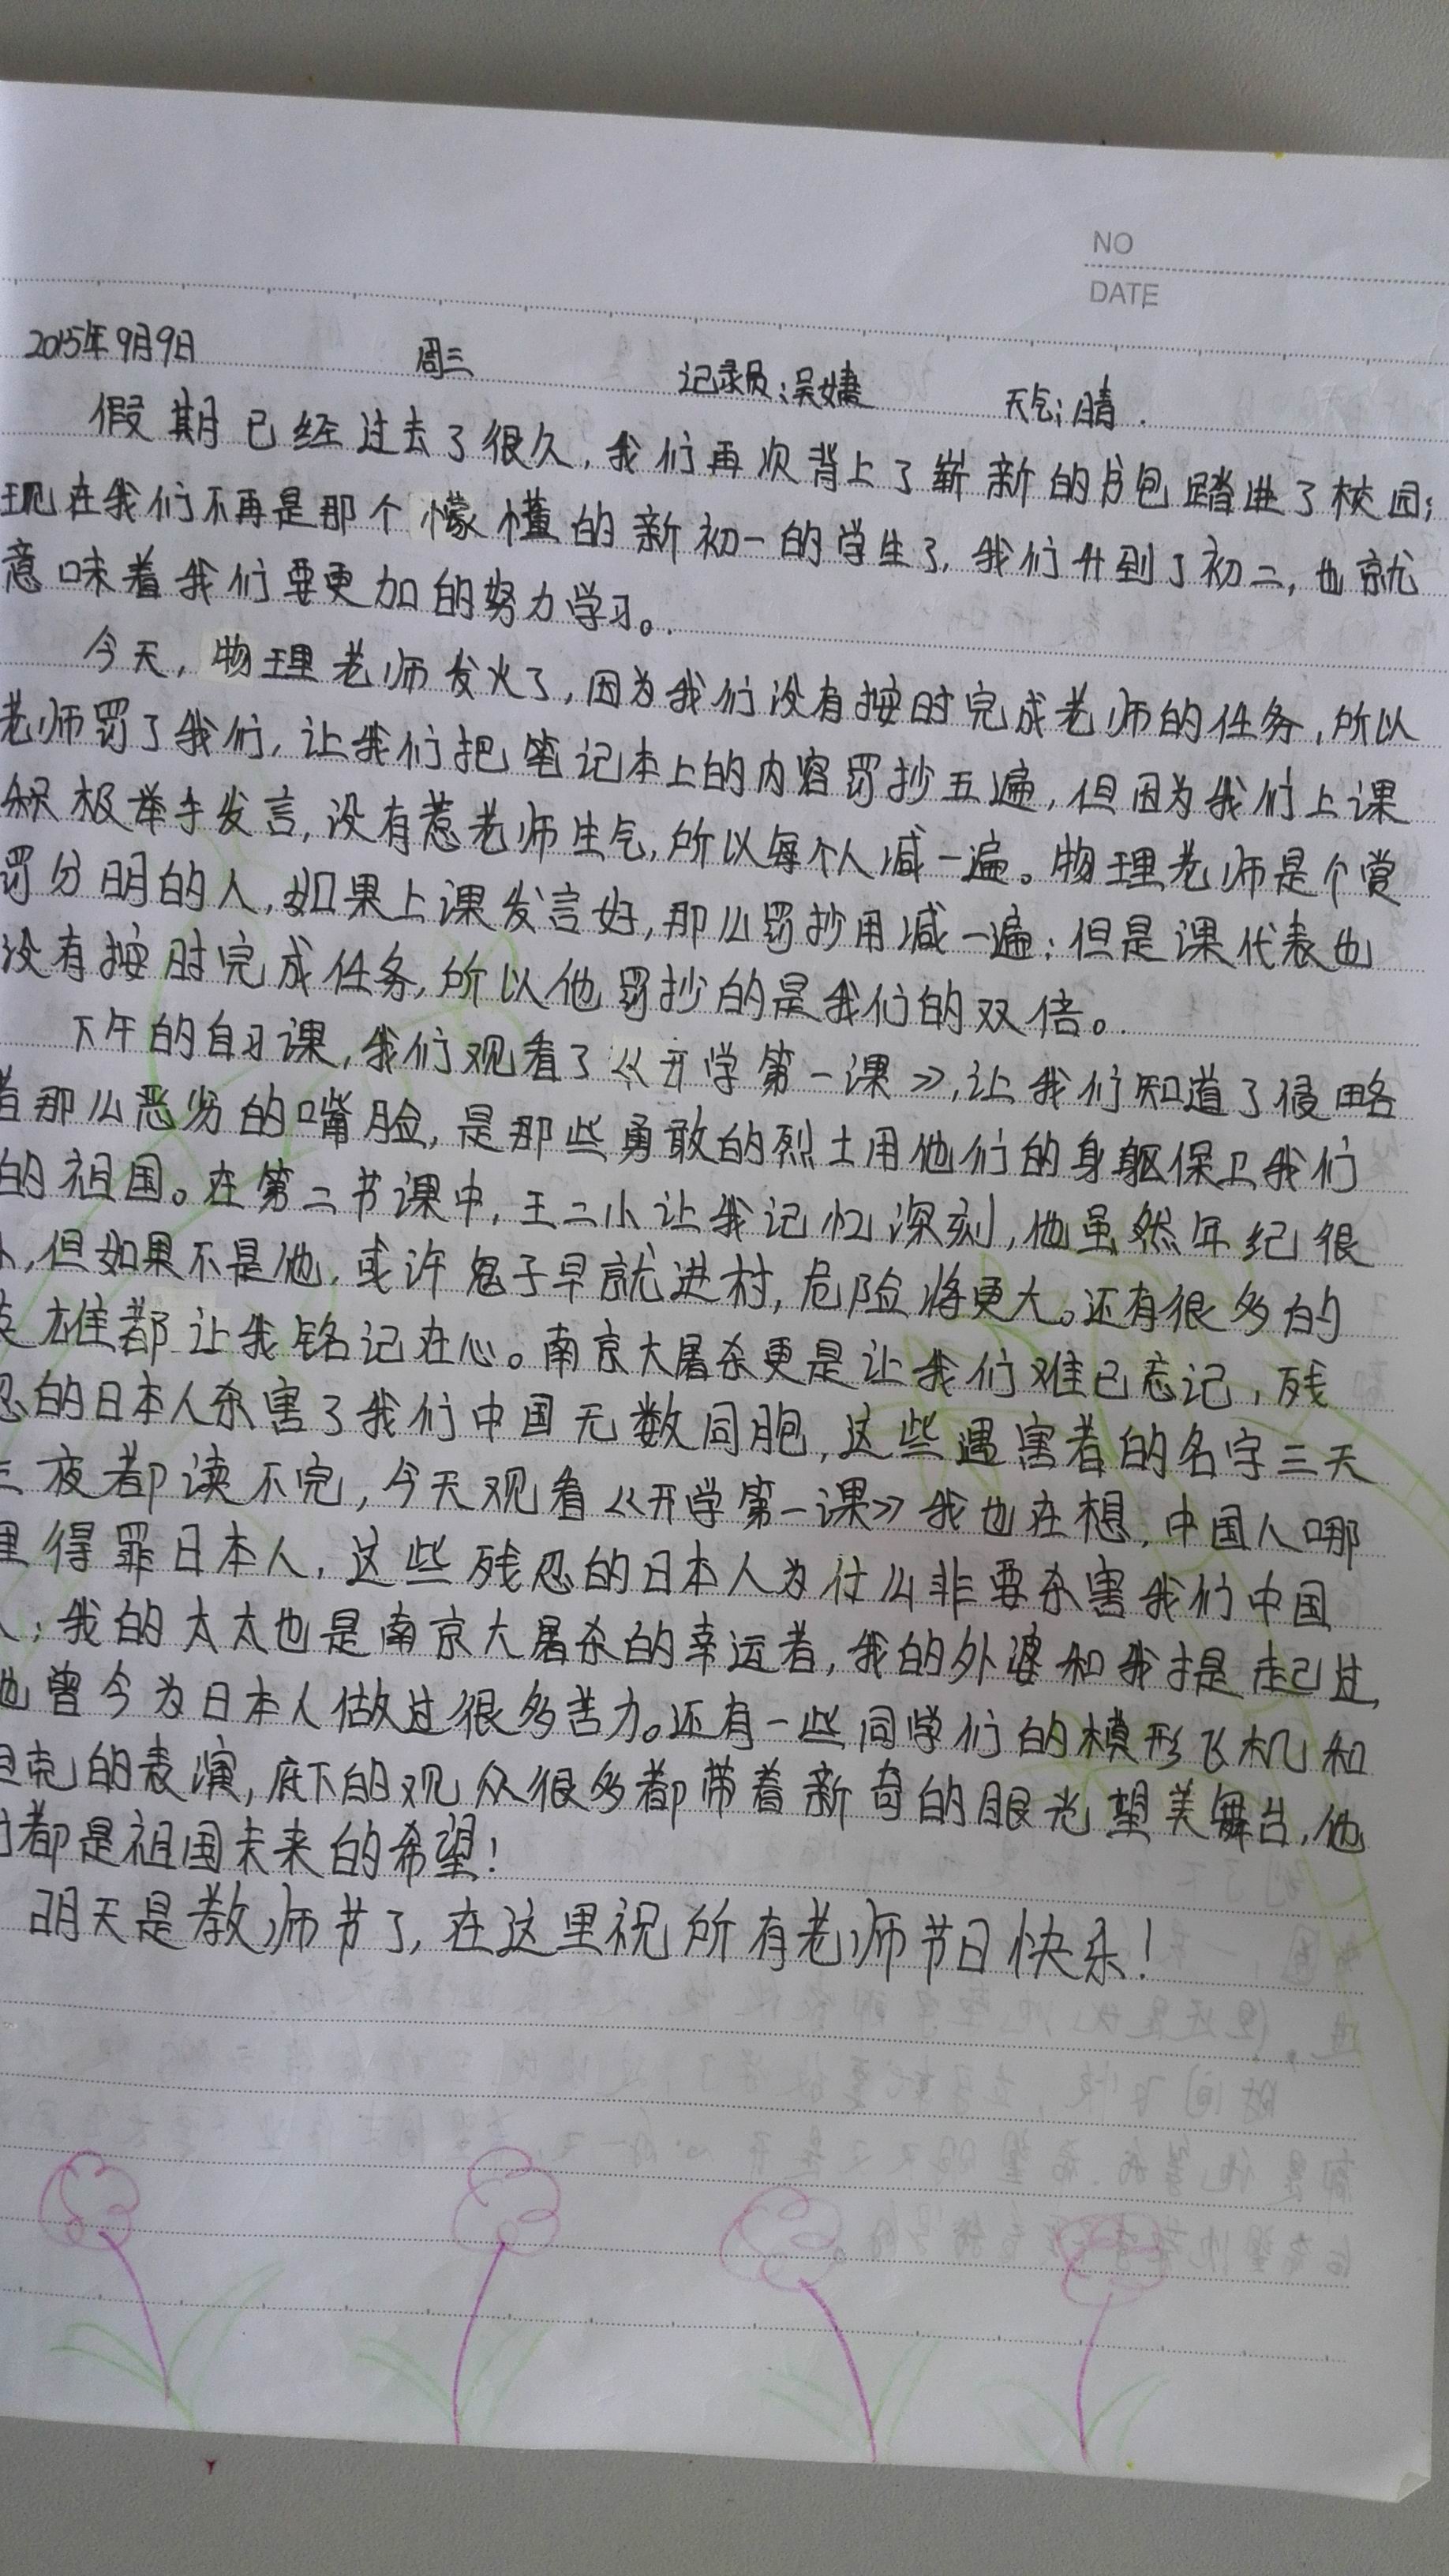 NO
DATE
2015年9月9日 周三 记录员:吴婕 天气:晴.
假期已经过去了很久,我们再次背上了崭新的书包踏进了校园;
现在我们不再是那个懞懂的新初一的学生了,我们升到了初二,也就
意味着我们要更加的努力学习。
今天,物理老师发火了,因为我们没有按时完成老师的任务,所以
老师罚了我们,让我们把笔记本上的内容罚抄五遍,但因为我们上课
积极举手发言,没有惹老师生气,所以每个人减一遍。物理老师是个赏
罚分明的人,如果上课发言好,那么罚抄用减一遍;但是课代表也
没有按时完成任务,所以他罚抄的是我们的双倍。
下午的自习课,我们观看了《开学第一课》,让我们知道了侵略
者那么恶劣的嘴脸,是那些勇敢的烈士用他们的身躯保卫我们
的祖国。在第二节课中,王二小让我记忆深刻,他虽然年纪很
小,但如果不是他,或许鬼子早就进村,危险将更大。还有很多的
英雄都让我铭记在心。南京大屠杀更是让我们难已忘记,残
忍的日本人杀害了我们中国无数同胞,这些遇害者的名字三天
三夜都读不完,今天观看《开学第一课》我也在想,中国人哪
里得罪日本人,这些残忍的日本人为什么非要杀害我们中国
人;我的太太也是南京大屠杀的幸运者,我的外婆和我提起过,
他曾今为日本人做过很多苦力。还有一些同学们的模形飞机和
坦克的表演,底下的观众很多都带着新奇的眼光望美舞台,他
们都是祖国未来的希望!
明天是教师节了,在这里祝所有老师节日快乐!